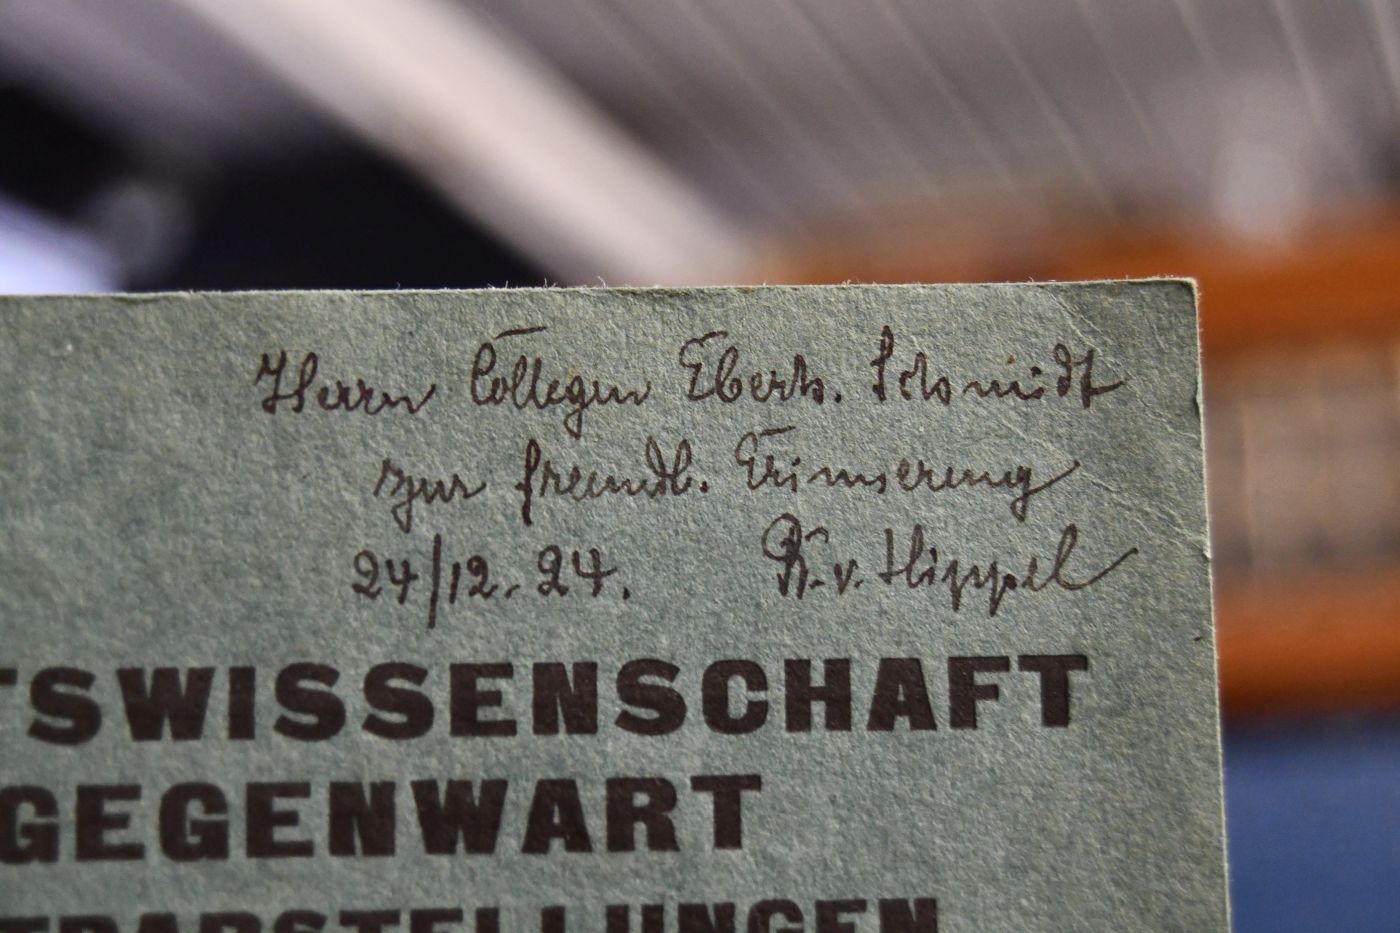 Herrn Collegen Eberh. Schmidt
zur freundl. Erinnerung
24/12.24. R. v. Hippel
TSWISSENSCHAFT
GEGENWART
TDARSTELLUNGEN